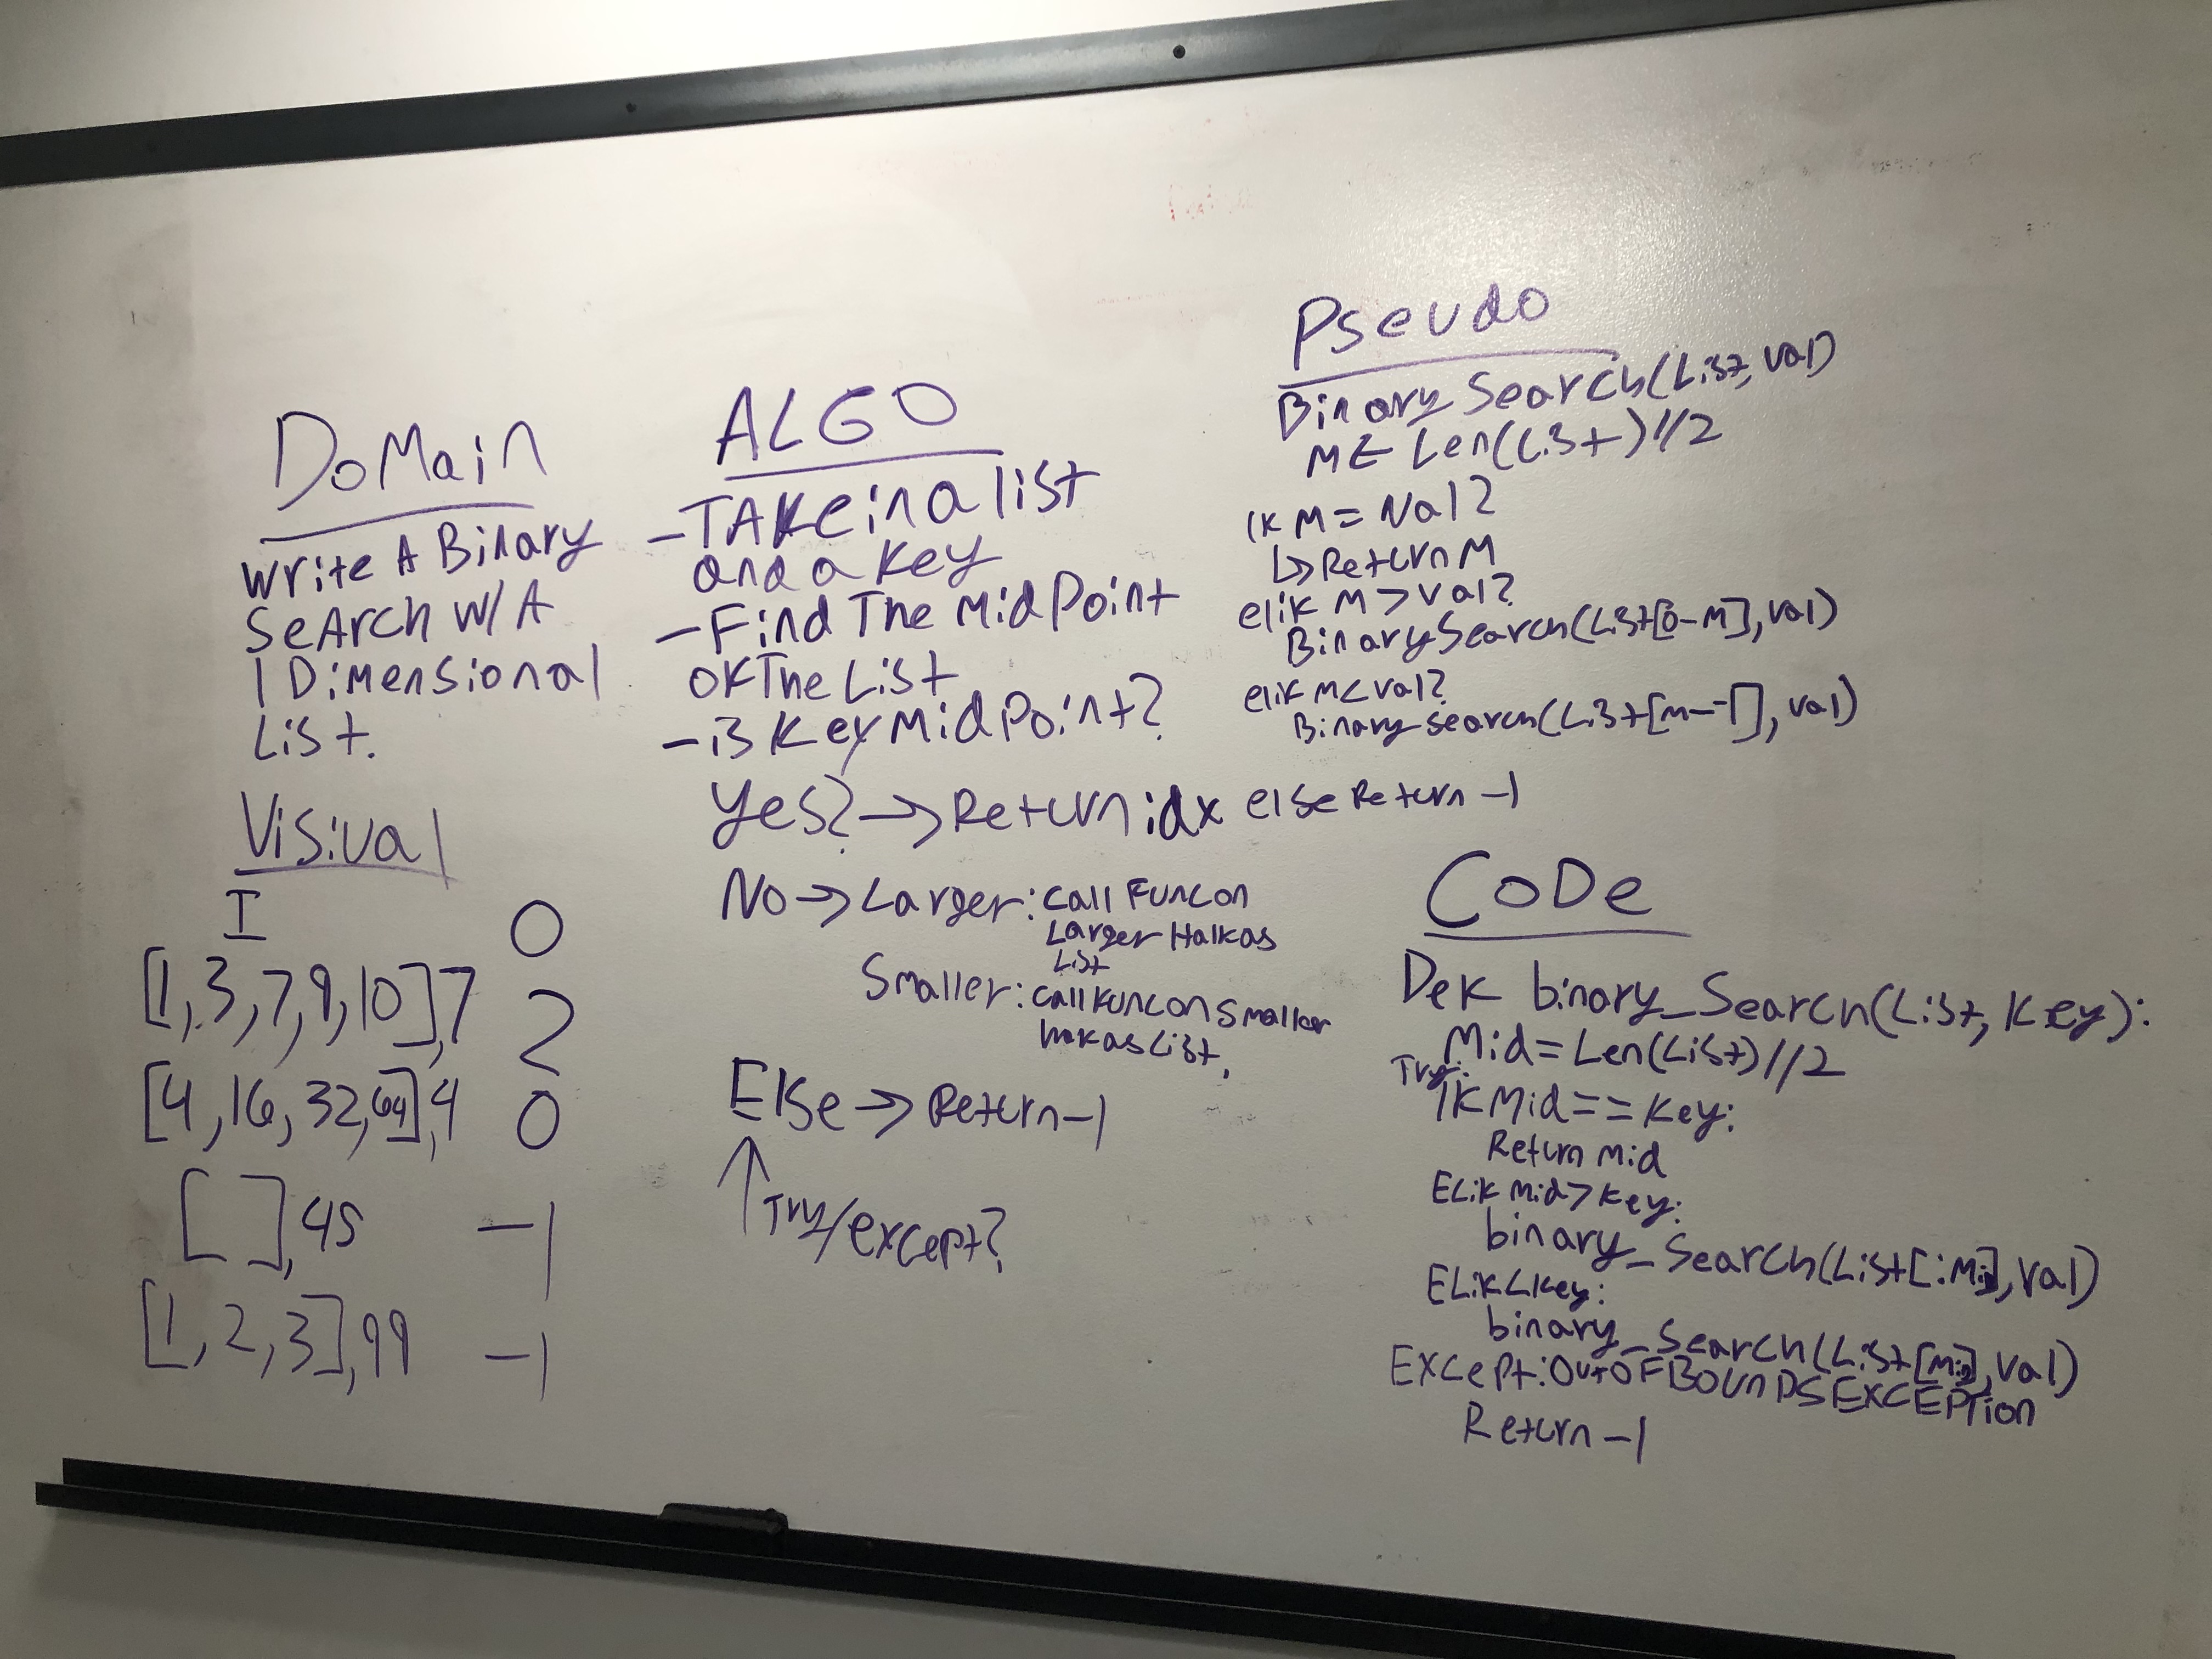 DoMain
Write A Binary
SeArch W/A
1 Dimensional
List.
Visual
I O
[1,3,7,9,10],7 2
[4,16,32,64],4 0
[ ],45 -1
[1,2,3],99 -1
ALGO
-TAKE in a list
and a key
-Find The MidPoint
of The List
-is Key MidPoint?
Yes? → Return idx else Return -1
No → Larger: call Func on
Larger Half as
List
Smaller: call Func on Smaller
half as List,
Else → Return -1
↑ Try/except?
Pseudo
Binary Search(List, val)
M ← Len(List)//2
IF M = Val?
↳ Return M
elif M > val?
Binary Search(List[0-M], val)
elif M < val?
Binary-Search(List[M--1], val)
CoDe
Def binary_Search(List, Key):
Mid = Len(List)//2
Try:
IF Mid == Key:
Return Mid
ELif Mid > key:
binary_Search(List[:Mid], val)
ELif < key:
binary_Search(List[Mid], val)
Except: OutOFBOUnDSEXCEPTion
Return -1